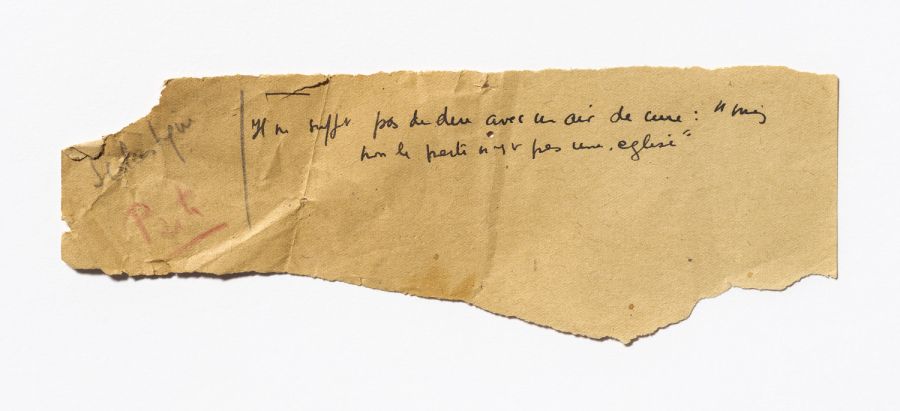 Scolastique
Parti
Il ne suffit pas de dire avec un air de cure : "mais
non le parti n'est pas une église"